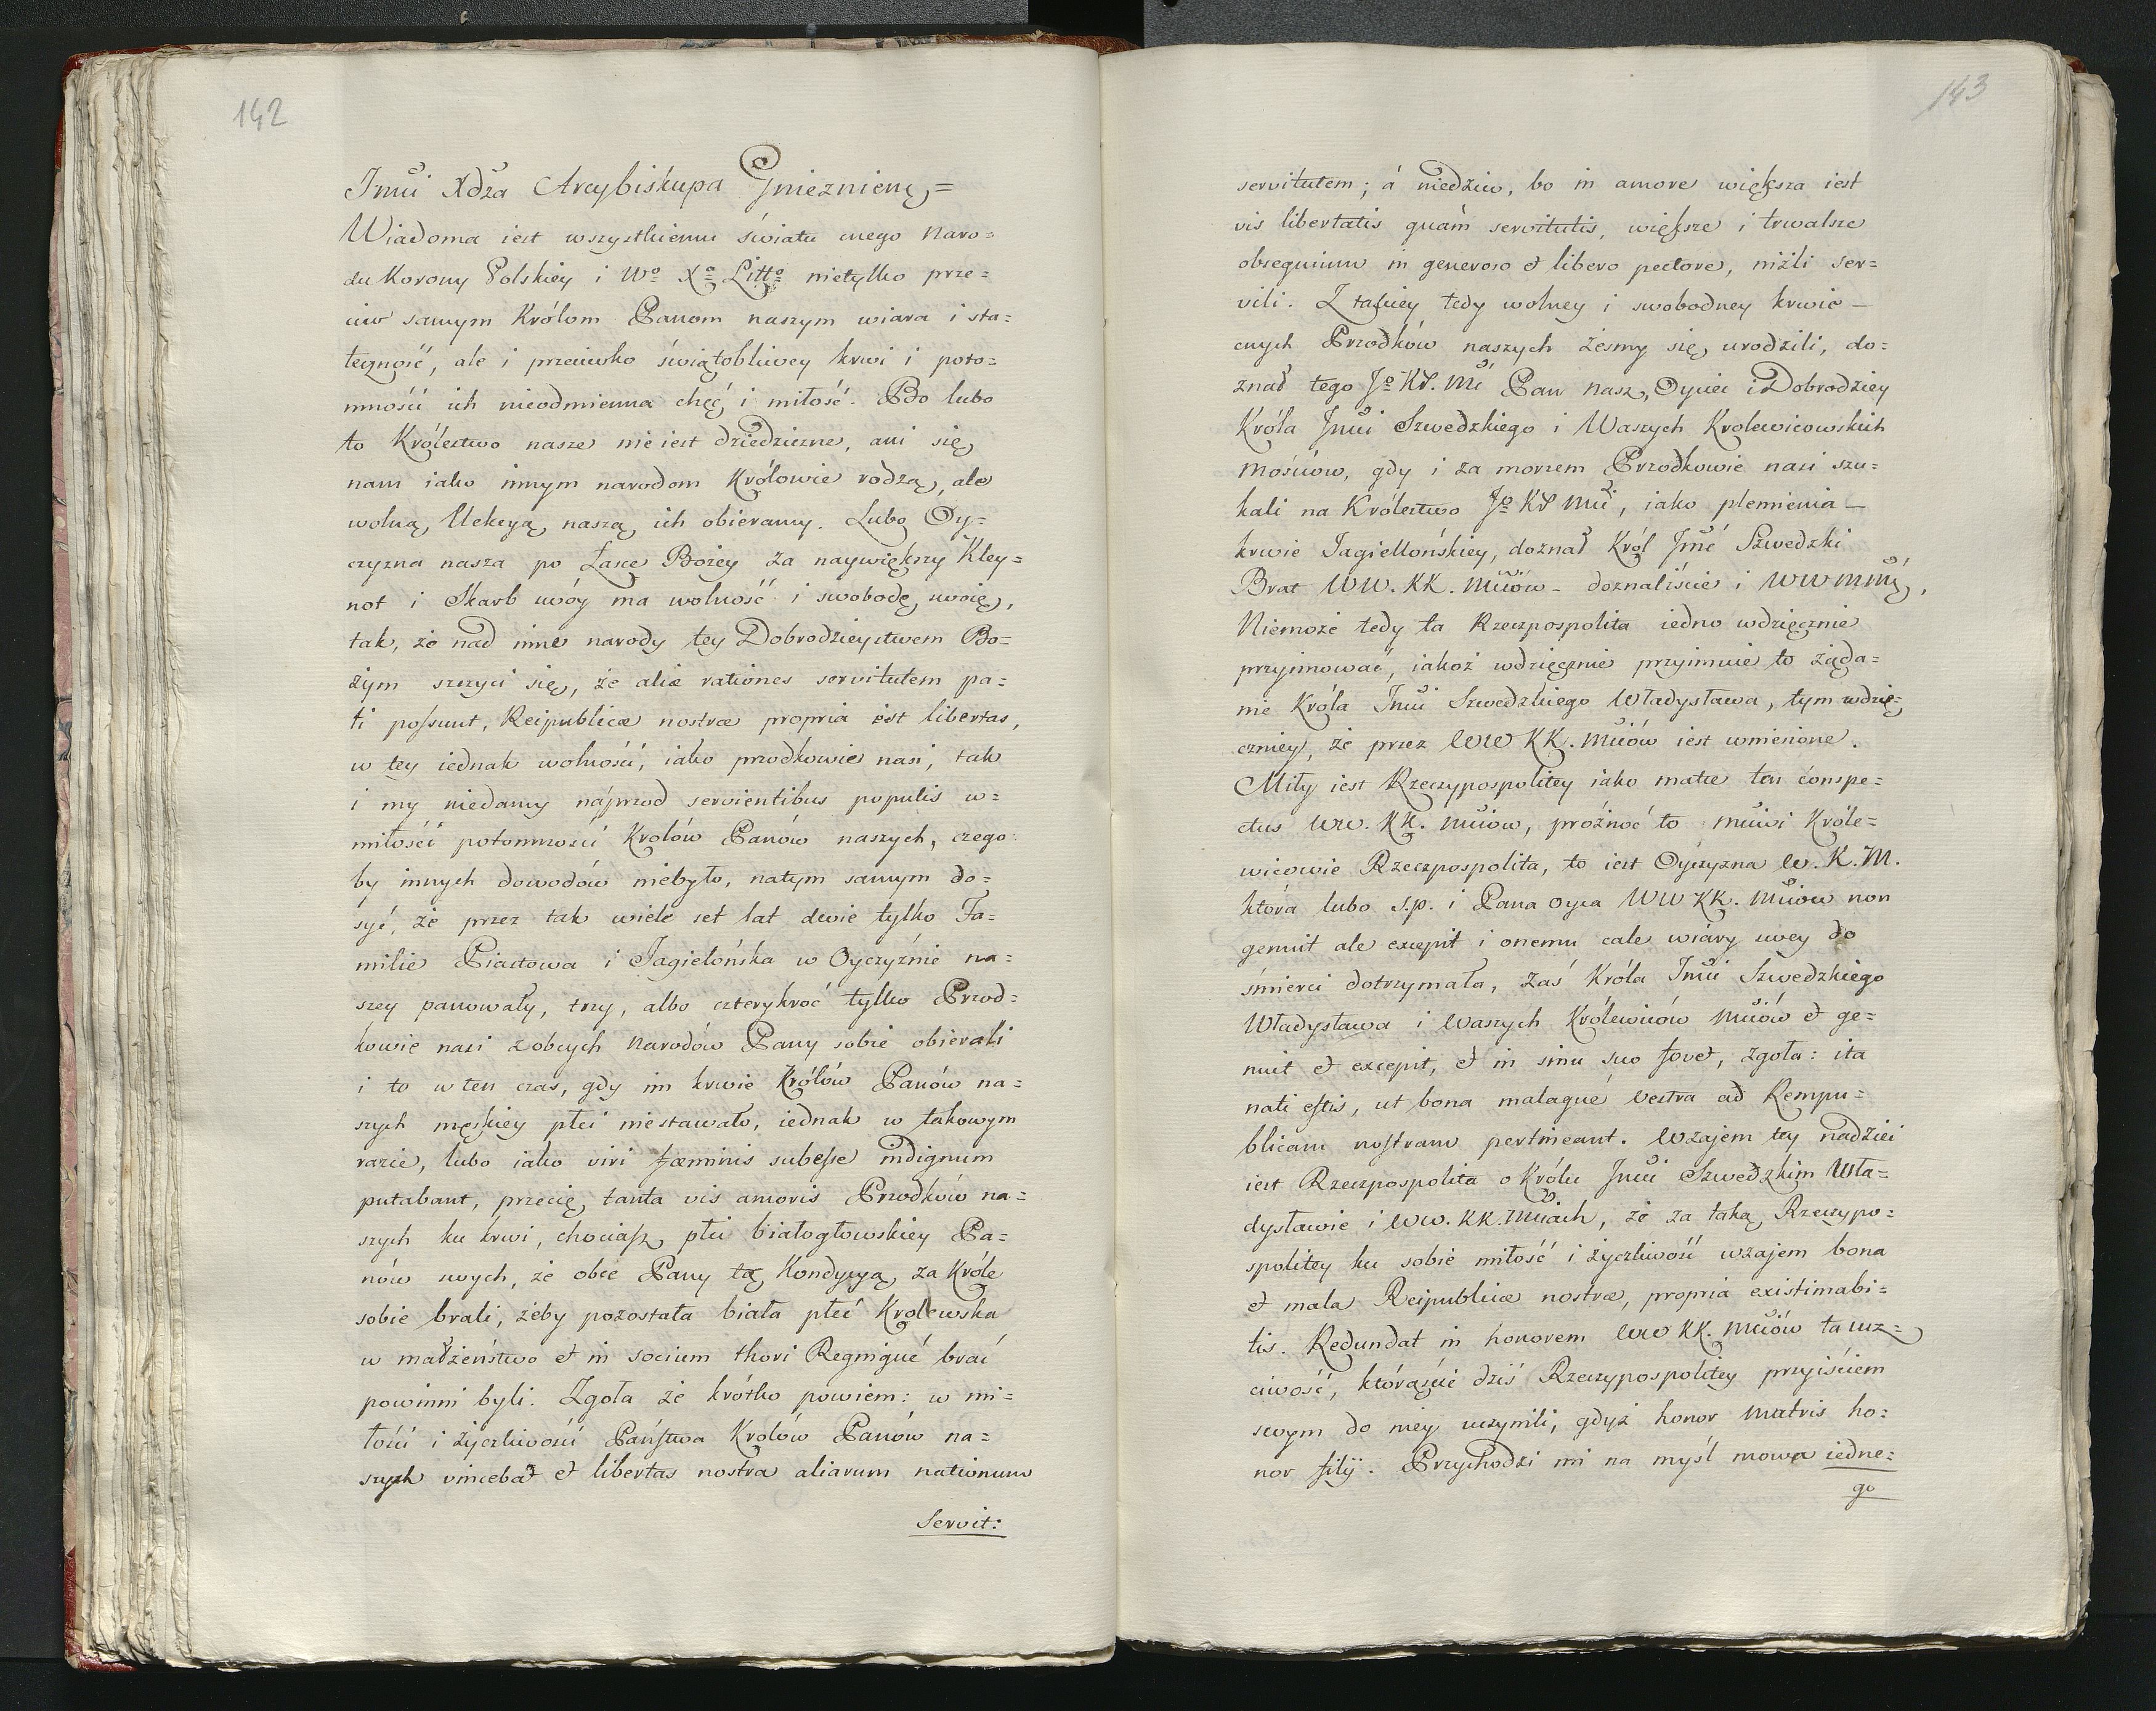 142
Jmći Xdza Arcybiskupa Gnieznieng=
Wiadoma iest wszystkiemu światu cnego naro=
du Korony Polskiey i Wo Xa Litto nietylko prze=
ciw samym Królom Panom naszym wiara i sta=
teczność, ale i przeciwko świątobliwey krwi i poto=
mności ich nieodmienna chęć i miłość. Bo lubo
to Królestwo nasze nie iest dziedziczne, ani się
nam iako innym narodom Królowie rodzą, ale
wolną Elekcyą naszą ich obieramy. Lubo Oy=
czyzna nasza po Łasce Bożey za naywiększy Kley=
not i Skarb swóy ma wolność i swobodę swoię,
tak, że nad inne narody tey Dobrodzieystwem Bo=
żym szczyci się, że aliæ rationes servitutem pa=
ti possunt, Reipublicæ nostræ propria est libertas,
w tey iednak wolności, iako przodkowie nasi, tak
i my niedamy náprzod servientibus populis w=
miłości potomności Krolów Panów naszych, czego
by innych dowodów niebyło, natym samym do=
syć, że przez tak wiele set lat dwie tylko Fa=
milie Piastowa i Jagielońska w Oyczyźnie na=
szey panowały, trzy, albo czterykroć tylko Przod=
kowie nasi z obcych Narodów Pany sobie obierali
i to w ten czas, gdy im krwie Królów Panów na=
szych męskiey płci niestawało, iednak w takowym
razie, lubo iako viri fæminis subesse indignum
putabant, przecię tanta vis amoris Przodków na=
szych ku krwi, chociasz płci białogłowskiey Pa=
nów swych, że obce Pany tą Kondycyą za Króle
sobie brali, żeby pozostała biała płeć Krolewska
w małżeństwo et in socium thori Regnique brać
powinni byli. Zgoła że krótko powiem: w mi=
łości i życzliwości Państwa Krolów Panów na=
szych vincebat et libertas nostra aliarum nationum
Servit:
143
servitutem; á niedziw, bo in amore większa iest
vis libertatis quám servitutis, większe i trwalsze
obsequium in generoso et libero pectore, niźli ser=
vili. Z takiey tedy wolney i swobodney krwie —
cnych Przodków naszych żesmy się urodzili, do=
znał tego Jo K. Mć Pan nasz, Oyciec i Dobrodziey
Króla Jmći Szwedzkiego i Waszych Krolewicowskich
Mościów, gdy i za morzem Przodkowie nasi szu=
kali na Królestwo Jo K Mći, iako plemienia —
krwie Jagiellońskiey, doznał Król Jmć Szwedzki
Brat WW. KK. Mciów - doznaliście i WW Mmć,
Niemoże tedy ta Rzeczpospolita iedno wdzięcznie
przyimować, iakoż wdzięcznie przyimuie to żąda=
nie Króla Jmći Szwedzkiego Władysława, tym wdzię=
czniey, że przez WW KK. Mciów iest wniesione.
Miły iest Rzeczypospolitey iako matce ten conspe=
ctus WW. KK. Mciow, próżnoć to Mciwi Króle=
wicowie Rzeczpospolita, to iest Oyczyzna W. K. M.
która lubo s.p. i Pana Oyca WW KK. Mciow non
genuit ale excepit i onemu cale wiáry swey do
śmierci dotrzymała, zaś Króla Jmći Szwedzkiego
Władysława i Waszych Królewiców Mciów et ge=
nuit et excepit, et in sinu suo fovet, zgoła: ita
nati estis, ut bona malaque vestra ad Rempu=
blicam nostram pertineant. Wzajem tey nadziei
iest Rzeczpospolita o Królu Jmći Szwedzkim Wła=
dysławie i WW. KK. Mciach, że za taką Rzeczypo=
spolitey ku sobie miłość i życzliwość wzajem bona
et mala Reipublicæ nostræ, propria existimabi=
tis. Redundat in honorem WW KK. Mciów ta ucz=
ciwość, któráście dziś Rzeczypospolitey przyiściem
swym do niey uczynili, gdyż honor Matris ho=
nor filij. Przychodzi mi na myśl mowa iedne=
go